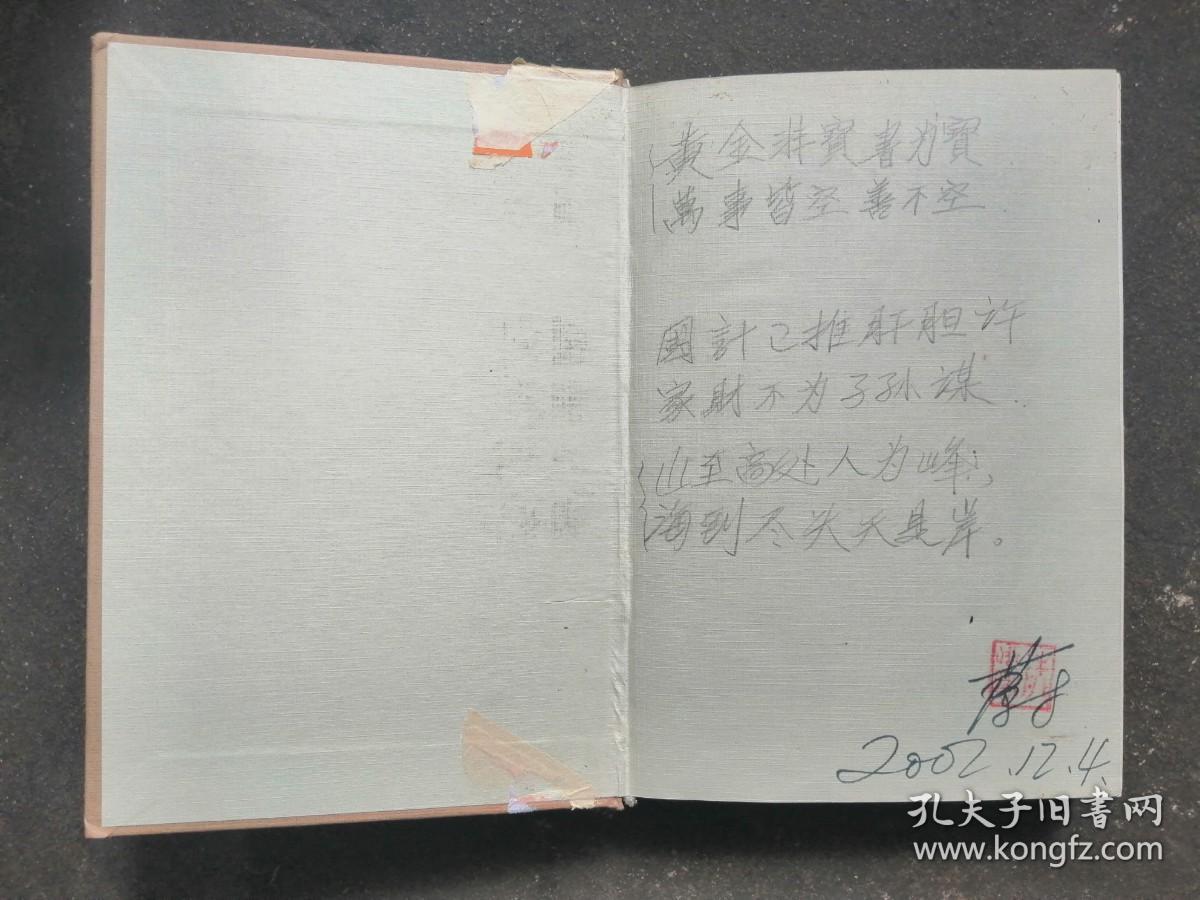 黄金非寶書为寶
萬事皆空善不空
國計已推肝胆许
家財不为子孙谋
山至高处人为峰
海到尽头天是岸。
2002.12.4.
孔夫子旧书网
www.kongfz.com